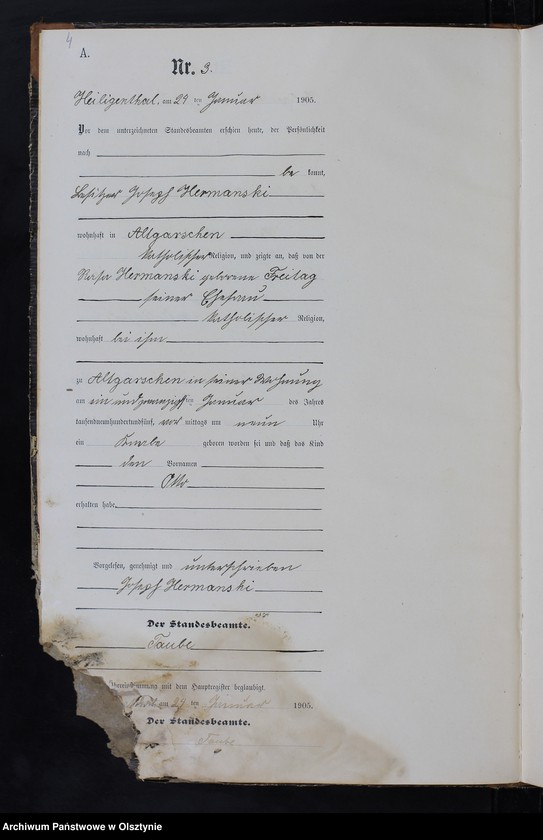 4
A.
Nr. 3.
Heiligenthal, am 24 ten Januar 1905.
Vor dem unterzeichneten Standesbeamten erschien heute, der Persönlichkeit
nach
be kannt,
Besitzer Joseph Hermanski
wohnhaft in Altgarschen
katholischer Religion, und zeigte an, daß von der
Rosa Hermanski geborene Freitag
seiner Ehefrau
katholischer Religion,
wohnhaft bei ihm
zu Altgarschen in seiner Wohnung
am ein und zwanzigsten Januar des Jahres
tausendneunhundertundfünf, vor mittags um neun Uhr
ein Knabe geboren worden sei und daß das Kind
den Vornamen
Otto
erhalten habe
Vorgelesen, genehmigt und unterschrieben
Joseph Hermanski
Der Standesbeamte.
Taube
mit dem Hauptregister beglaubigt
am 24 ten Januar 1905.
Der Standesbeamte.
Taube
Archiwum Państwowe w Olsztynie